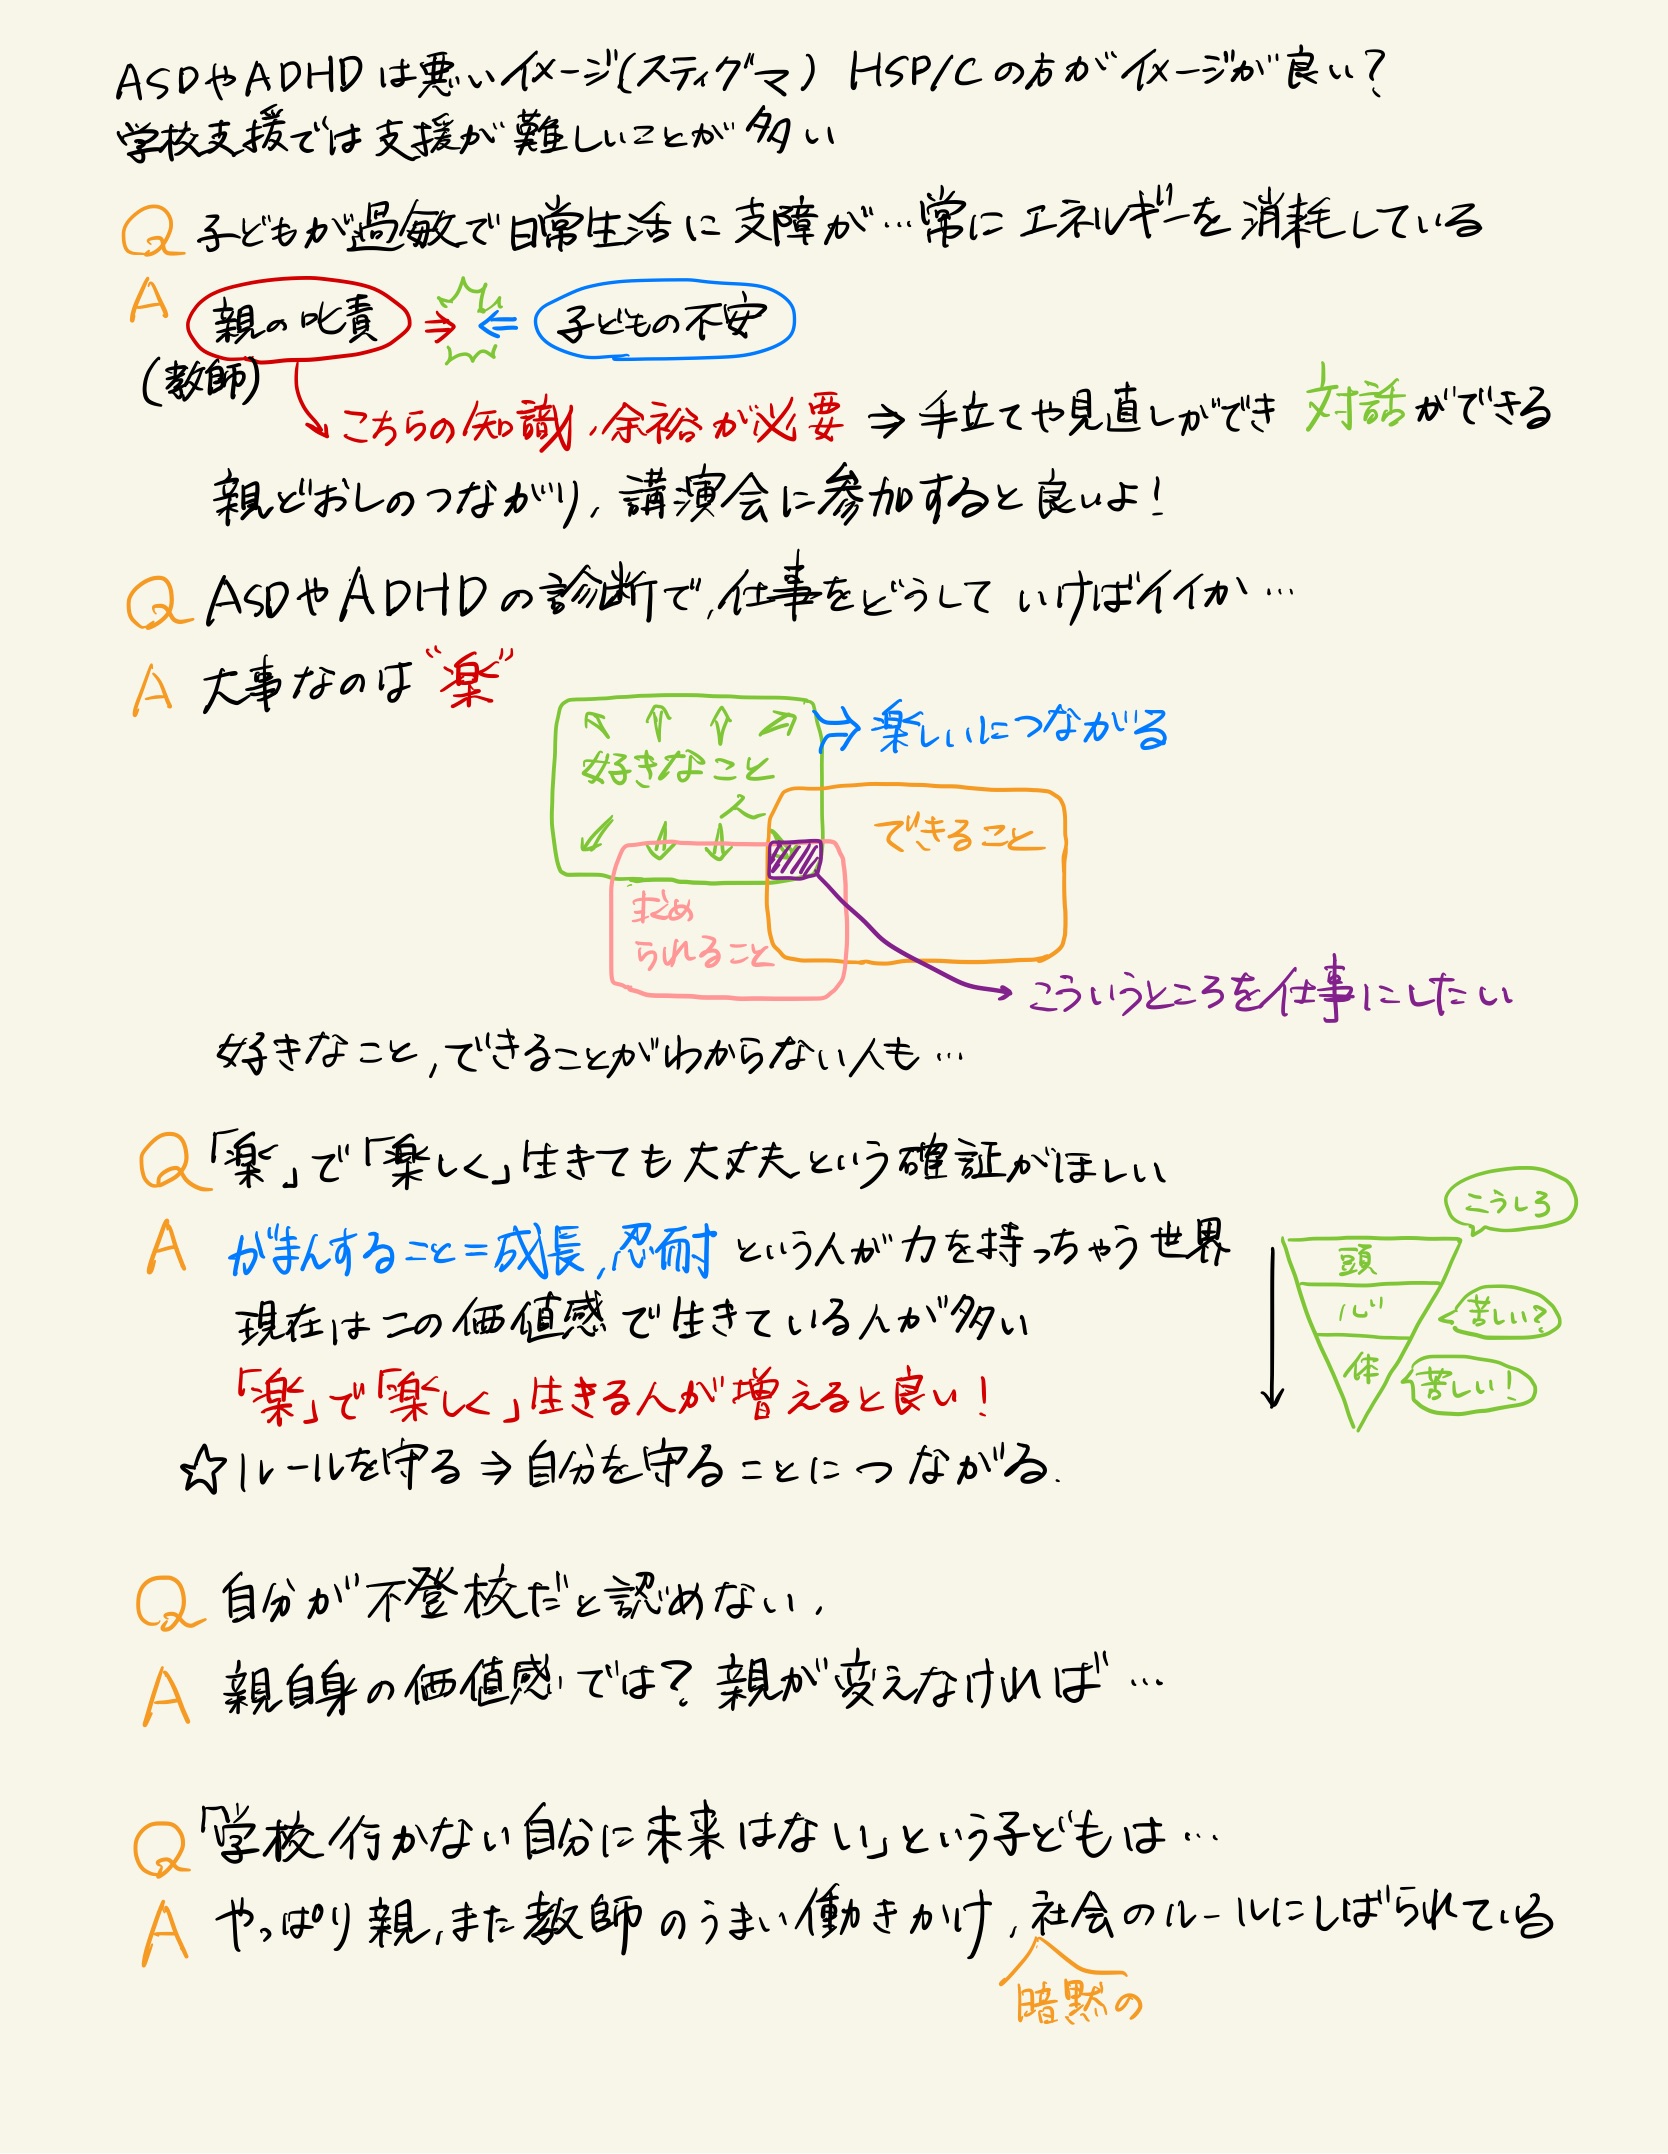 ASDやADHDは悪いイメージ(スティグマ) HSP/Cの方がイメージが良い?
学校支援では支援が難しいことが多い
Q 子どもが過敏で日常生活に支障が…常にエネルギーを消耗している
A 親の叱責 ⇒ ⇐ 子どもの不安
(教師)
こちらの知識,余裕が必要 ⇒ 手立てや見直しができ 対話ができる
親どおしのつながり,講演会に参加すると良いよ!
Q ASDやADHDの診断で,仕事をどうしていけばイイか…
A 大事なのは“楽”
好きなこと
⇒楽しいにつながる
人
できること
求め
られること
→こういうところを仕事にしたい
好きなこと,できることがわからない人も…
Q 「楽」で「楽しく」生きても大丈夫という確証がほしい
A がまんすること=成長,忍耐という人が力を持っちゃう世界
現在はこの価値感で生きている人が多い
「楽」で「楽しく」生きる人が増えると良い!
☆ルールを守る⇒自分を守ることにつながる.
こうしろ
頭
心
苦しい?
体
苦しい!
Q 自分が不登校だと認めない.
A 親自身の価値感では? 親が変えなければ…
Q 「学校行かない自分に未来はない」という子どもは…
A やっぱり親,また教師のうまい働きかけ,社会のルールにしばられている
暗黙の